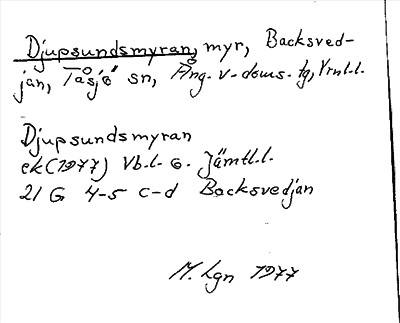 Djupsundsmyran, myr, Backsved-
jan, Tåsjö sn, Ång. v-doms. tg, Vrnl.l.
Djupsundsmyran
ek (1977) Vb.l. o. Jämtl.l.
21 G 4-5 c-d Backsvedjan
M. Lgn 1977